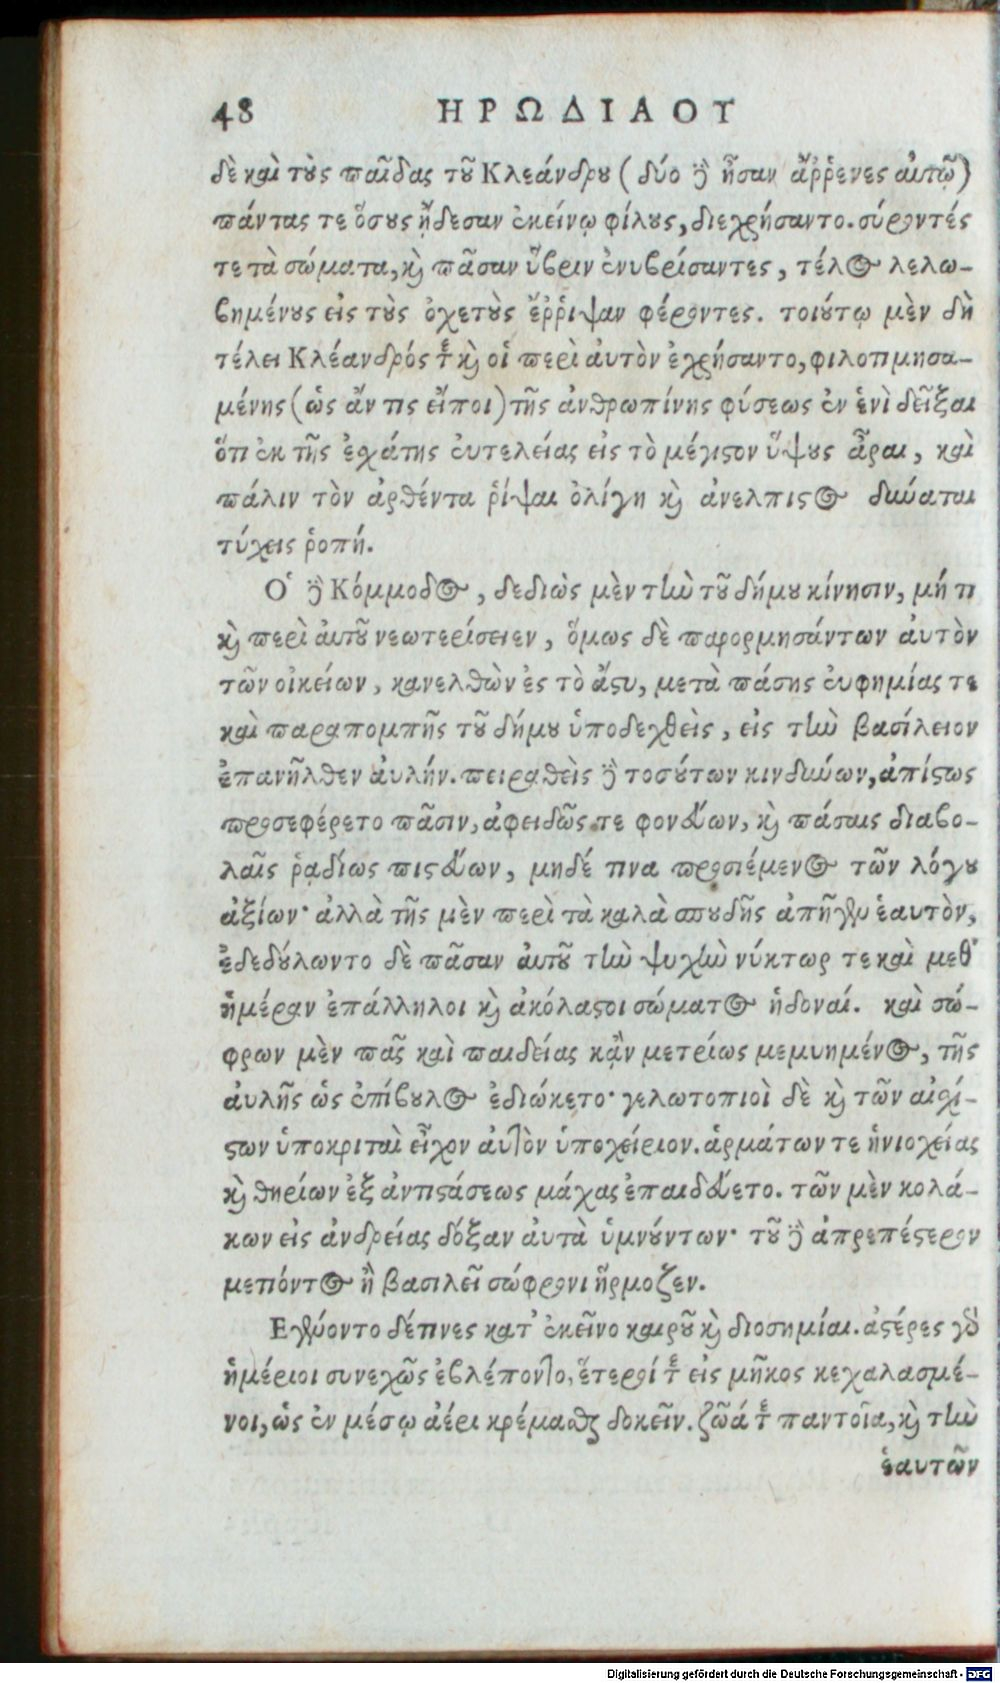 48 ΗΡΩΔΙΑΟΥ
δὲ καὶ τοὺς παῖδας τοῦ Κλεάνδρου (δύο δὲ ἦσαν ἄῤῥενες αὐτῷ)
πάντας τε ὅσους ᾔδεσαν ἐκείνῳ φίλους, διεχρήσαντο. σύροντές
τε τὰ σώματα, καὶ πᾶσαν ὕβριν ἐνυβρίσαντες, τέλος λελω-
βημένους εἰς τοὺς ὀχετοὺς ἔῤῥιψαν φέροντες. τοιούτῳ μὲν δὴ
τέλει Κλέανδρός τε καὶ οἱ περὶ αὐτὸν ἐχρήσαντο, φιλοτιμησα-
μένης (ὡς ἄν τις εἴποι) τῆς ἀνθρωπίνης φύσεως ἐν ἑνὶ δεῖξαι
ὅτι ἐκ τῆς ἐχάτης εὐτελείας εἰς τὸ μέγιστον ὕψους ἆραι, καὶ
πάλιν τὸν ἀρθέντα ῥίψαι ὀλίγη καὶ ἀνέλπιστος δύναται
τύχεις ῥοπή.
Ὁ δὲ Κόμμοδος, δεδιὼς μὲν τὴν τοῦ δήμου κίνησιν, μή τι
καὶ περὶ αὐτοῦ νεωτερίσειεν, ὅμως δὲ παρορμησάντων αὐτὸν
τῶν οἰκείων, κανελθὼν ἐς τὸ ἄστυ, μετὰ πάσης εὐφημίας τε
καὶ παραπομπῆς τοῦ δήμου ὑποδεχθεὶς, εἰς τὴν βασίλειον
ἐπανῆλθεν αὐλήν. πειραθεὶς δὲ τοσούτων κινδύνων, ἀπίστως
προσεφέρετο πᾶσιν, ἀφειδῶς τε φονεύων, καὶ πάσαις διαβο-
λαῖς ῥᾳδίως πιστεύων, μηδέ τινα προσιέμενος τῶν λόγου
ἀξίων· ἀλλὰ τῆς μὲν περὶ τὰ καλὰ σπουδῆς ἀπῆγεν ἑαυτὸν,
ἐδεδούλωντο δὲ πᾶσαν αὐτοῦ τὴν ψυχὴν νύκτωρ τε καὶ μεθ'
ἡμέραν ἐπάλληλοι καὶ ἀκόλαστοι σώματος ἡδοναί. καὶ σώ-
φρων μὲν πᾶς καὶ παιδείας κᾂν μετρίως μεμνημένος, τῆς
αὐλῆς ὡς ἐπίβουλος ἐδιώκετο· γελωτοπιοὶ δὲ καὶ τῶν αἰσχί-
στων ὑποκριταὶ εἶχον αὐτὸν ὑποχείριον. ἁρμάτων τε ἡνιοχείας
καὶ θηρίων ἐξ ἀντιστάσεως μάχας ἐπαιδεύετο. τῶν μὲν κολά-
κων εἰς ἀνδρείας δόξαν αὐτὰ ὑμνούντων· τοῦ δὲ ἀπρεπέστερον
μετιόντος ἢ βασιλεῖ σώφρονι ἥρμοζεν.
Ἐγένοντο δέ τινες κατ' ἐκεῖνο καιροῦ καὶ διοσημίαι. ἀστέρες γὰρ
ἡμέριοι συνεχῶς ἐβλέποντο, ἕτεροί τε εἰς μῆκος κεχαλασμέ-
νοι, ὡς ἐν μέσῳ ἀέρι κρέμασθαι δοκεῖν. ζῶά τε παντοῖα, καὶ τὴν
ἑαυτῶν
Digitalisierung gefördert durch die Deutsche Forschungsgemeinschaft - DFG